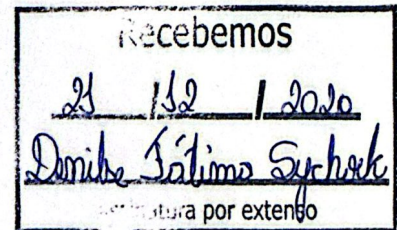 Recebemos
21 / 12 / 2020
Denilse Fátima Sychock
assinatura por extenso